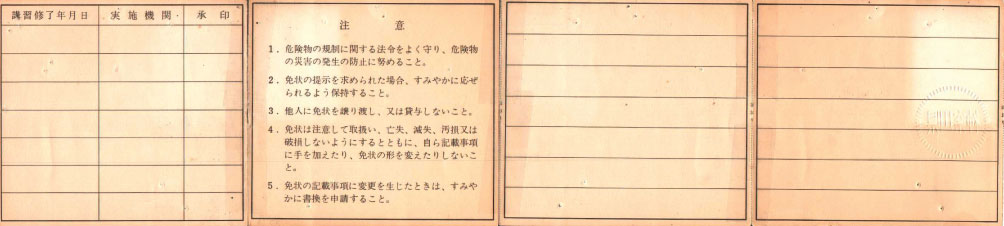 講習修了年月日 実施機関 承印
注意
1. 危険物の規制に関する法令をよく守り、危険物
の災害の発生の防止に努めること。
2. 免状の提示を求められた場合、すみやかに応ぜ
られるよう保持すること。
3. 他人に免状を譲り渡し、又は貸与しないこと。
4. 免状は注意して取扱い、亡失、滅失、汚損又は
破損しないようにするとともに、自ら記載事項
に手を加えたり、免状の形を変えたりしないこ
と。
5. 免状の記載事項に変更を生じたときは、すみや
かに書換を申請すること。